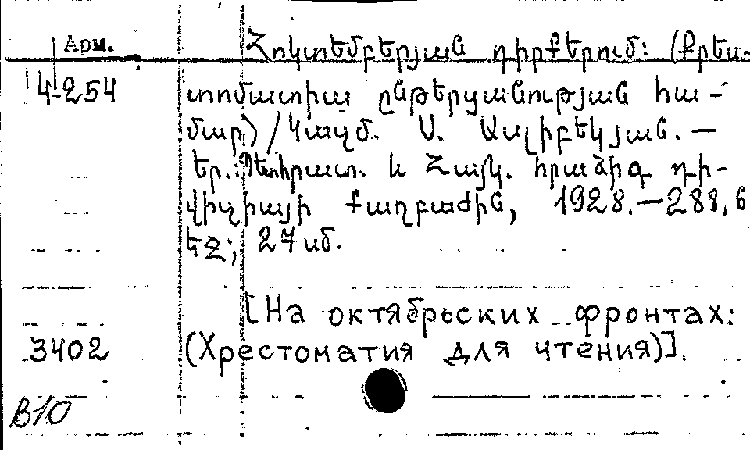 Арм.
Հոկտեմբերյան դիրքերում: (Քրես-
4-254 տոմատիա ընթերցանության հա-
մար) / Կազմ. Ս. Ալիբեկյան. —
Եր.: Պետհրատ. և Հայկ. հրաձիգ դի-
վիզիայի քաղբաժին, 1928. — 288, 6
եջ; 27 սմ.
[На октябрьских фронтах:
3402 (Хрестоматия для чтения)].
В10